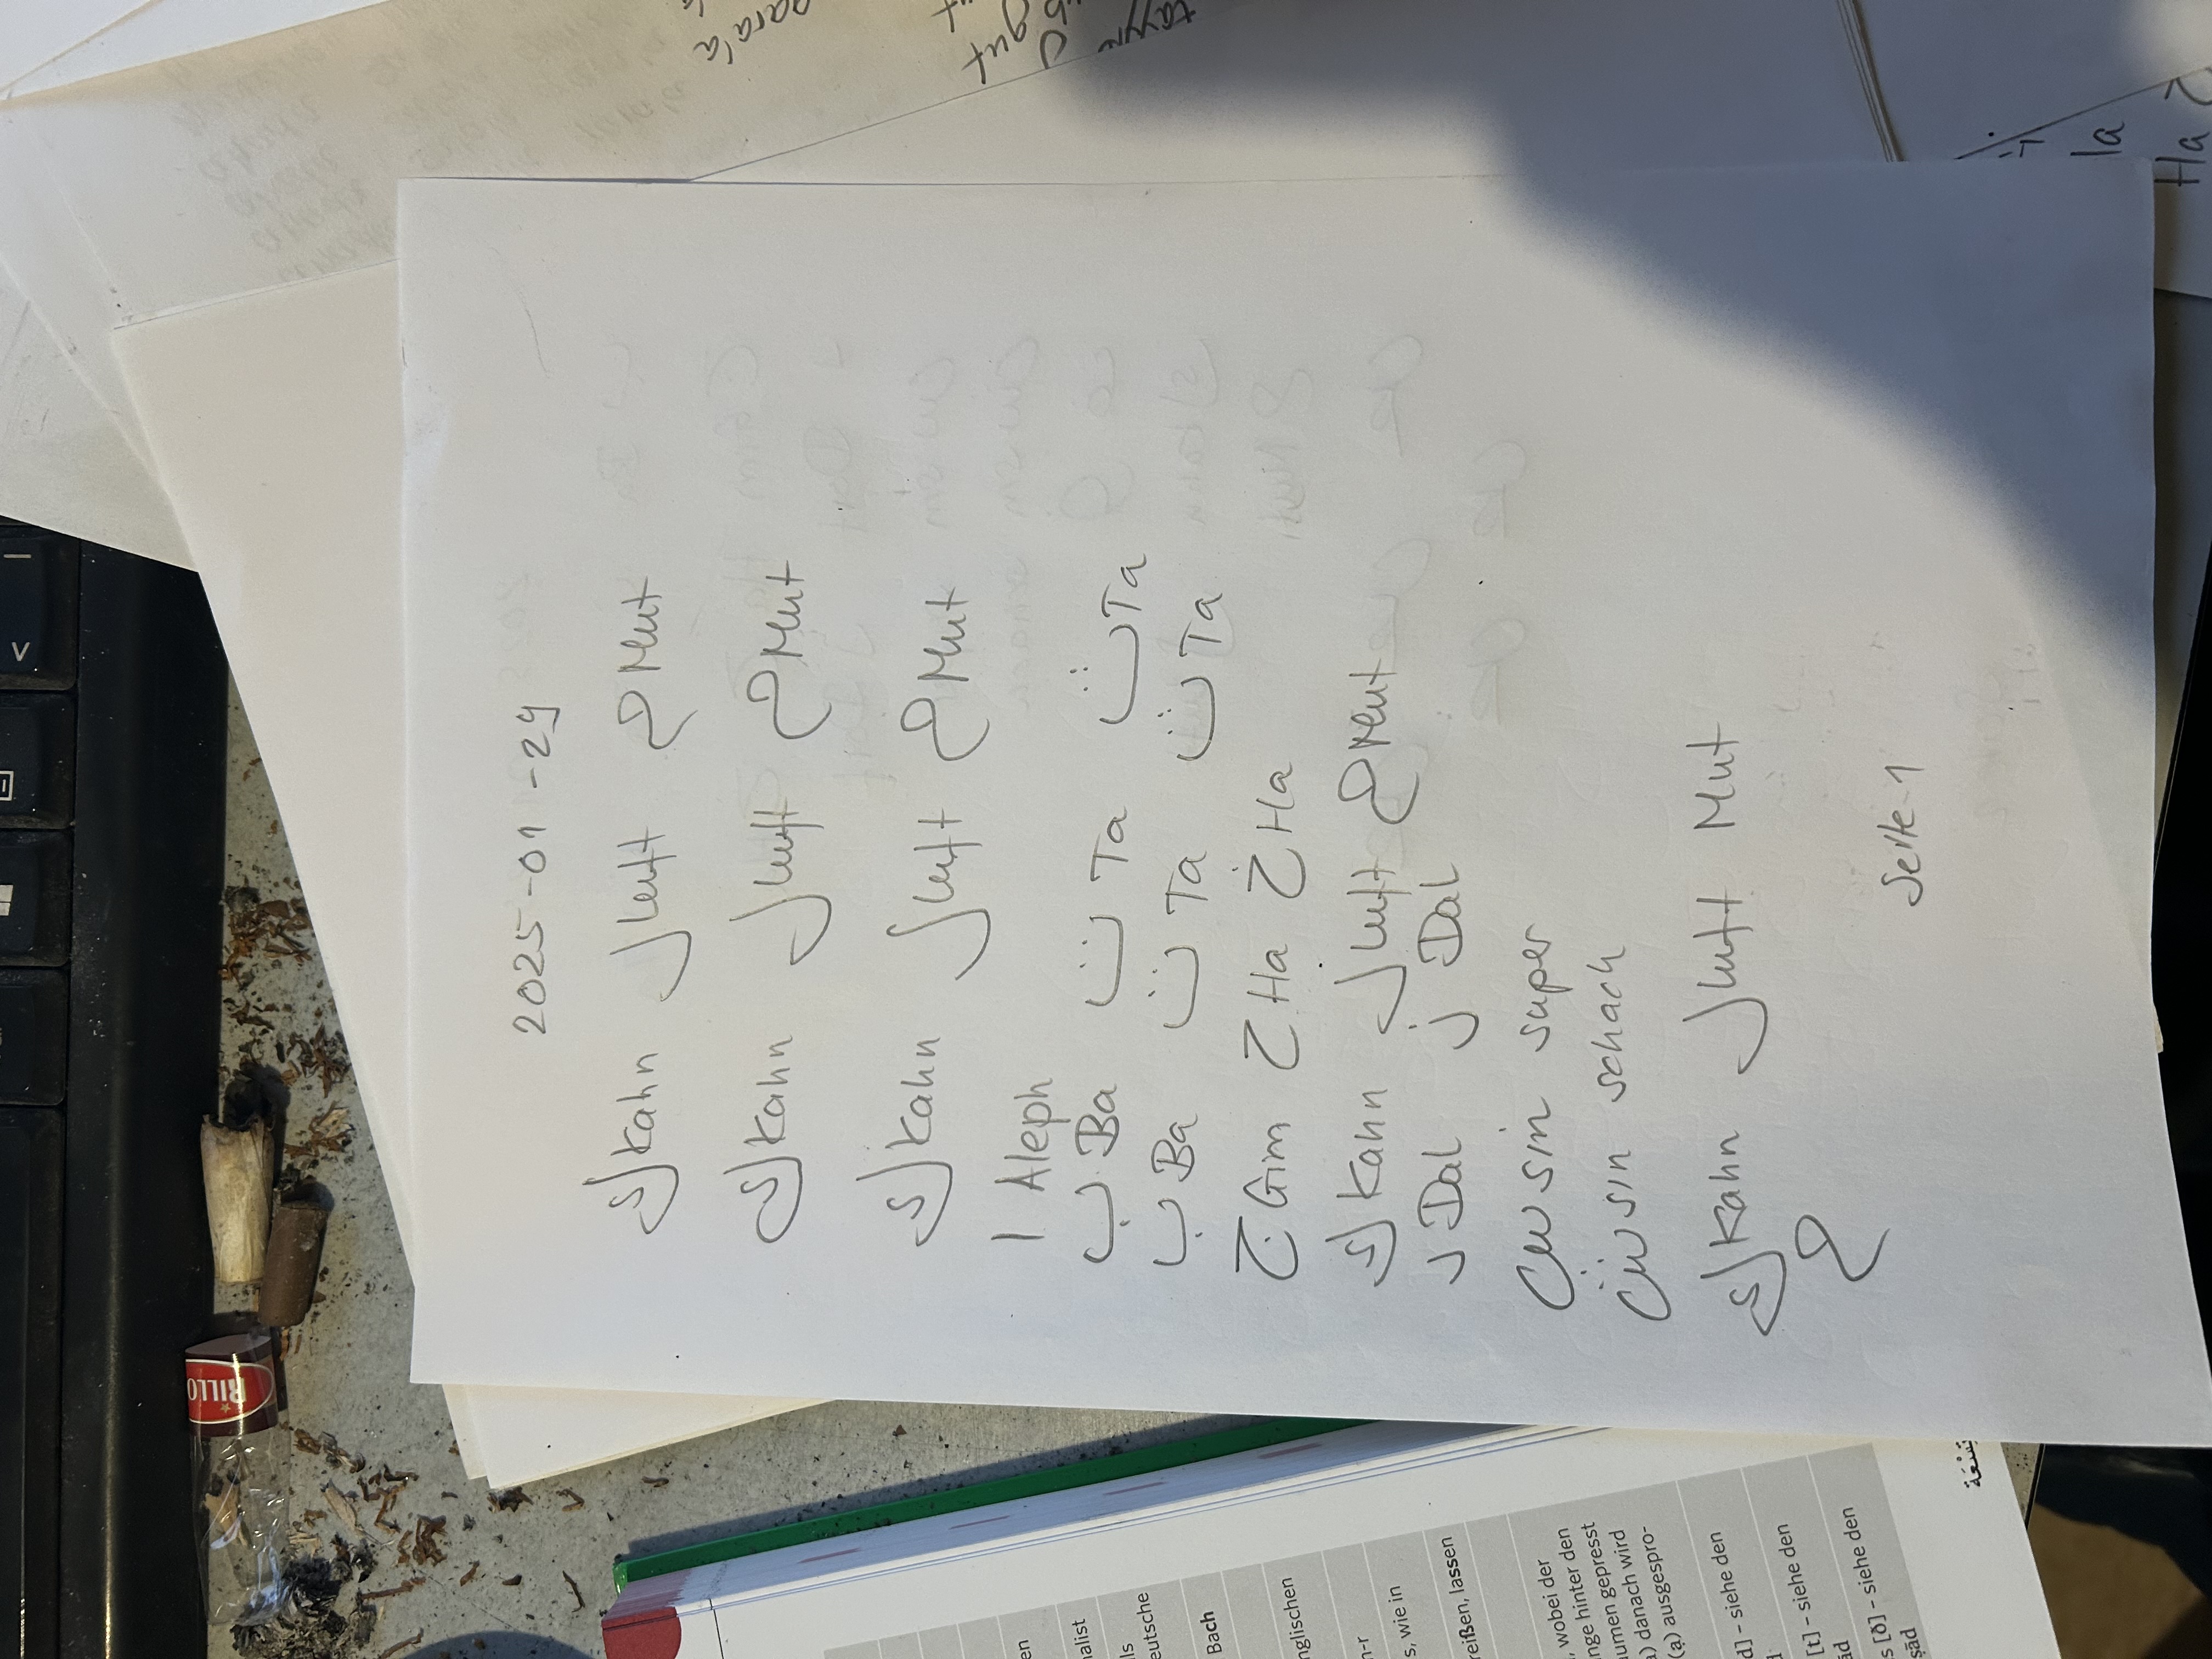 RILLO
2025-01-29
ك Kahn ل Luft م Mut
ك Kahn ل Luft م Mut
ك Kahn ل Luft م Mut
ا Aleph
ب Ba ت Ta ث Ta
ب Ba ت Ta ث Ta
ج Gim ح Ha خ Ha
ك Kahn ل Luft م Mut
د Dal ذ Dal
س sin super
ش sin schach
ك Kahn ل Luft Mut
م
Seite 1
en
nalist
ls
eutsche
Bach
nglischen
n-r
s, wie in
reißen, lassen
, wobei der
nge hinter den
aumen gepresst
a) danach wird
(ạ) ausgespro-
d] – siehe den
[t] – siehe den
ād
s [ð] – siehe den
ṣād
تِسْعَة
la
Ha